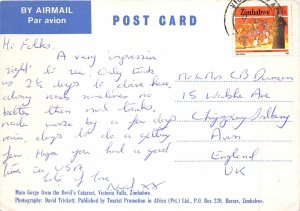 BY AIRMAIL
Par avion
POST CARD
Zimbabwe
Hi Folks.
A very impressive
sight to see. Only took
us 2½ days to drive here,
along roads
better than mud tracks,
made worse by a few days
rain, days to do a
few. Hope you had a good
time in USA
lots of love
Mr & Mrs C B
15
Chipping Sodbury
Avon
England
UK
Main Gorge from the Devil's Cataract, Victoria Falls, Zimbabwe.
Photography: David Trickett. Published by Tourist Promotion in Africa (Pvt.) Ltd., P.O. Box, Harare, Zimbabwe.